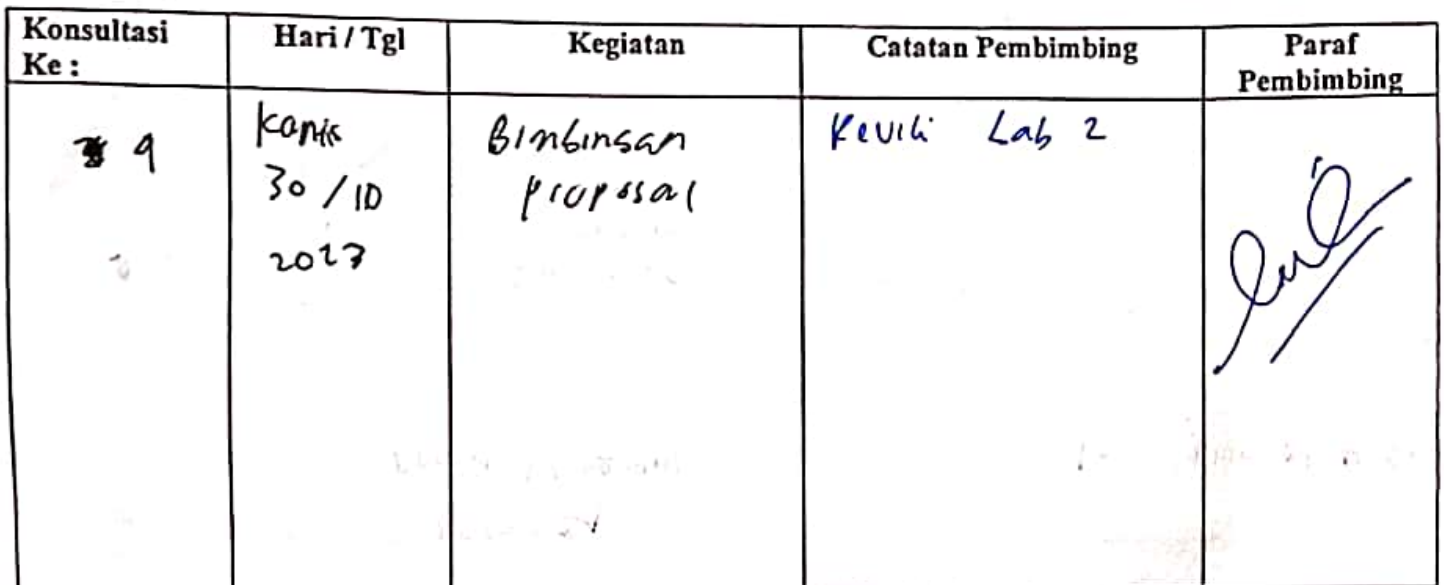 Konsultasi Ke :
Hari / Tgl
Kegiatan
Catatan Pembimbing
Paraf Pembimbing
9
Kamis
30 / 10
2023
Bimbingan
proposal
Revisi Lab 2